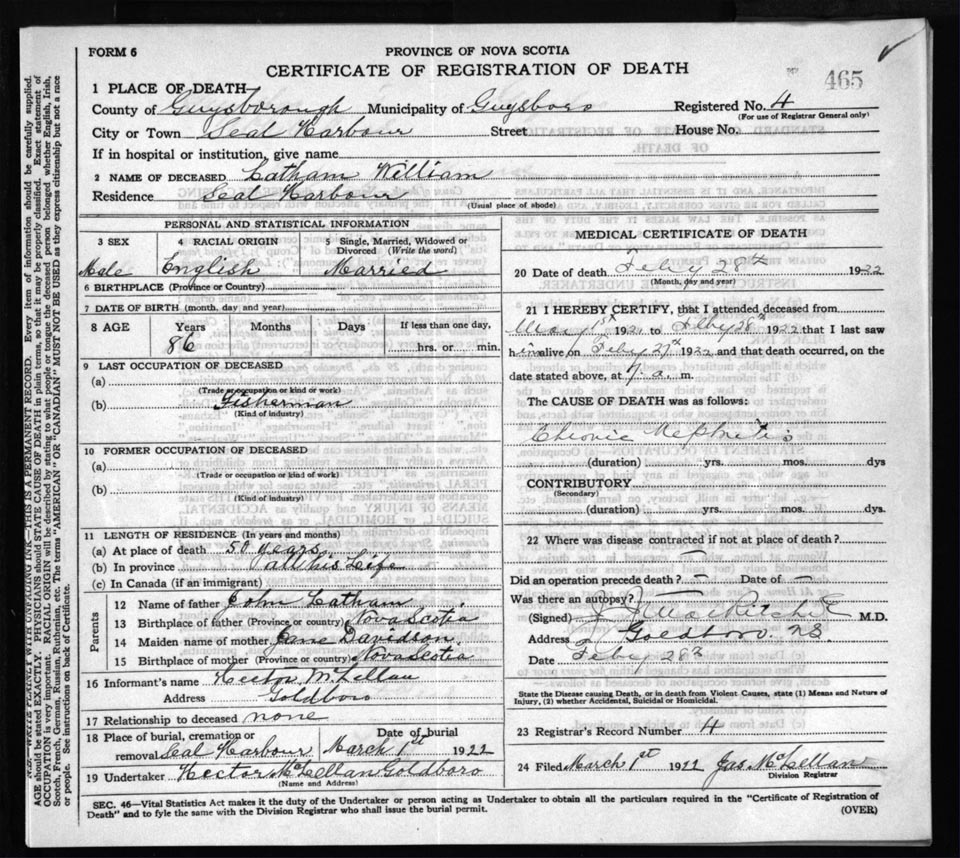 FORM 6
PROVINCE OF NOVA SCOTIA
CERTIFICATE OF REGISTRATION OF DEATH
465
1 PLACE OF DEATH—
County of Guysborough Municipality of Guysboro Registered No. 4
(For use of Registrar General only)
City or Town Seal Harbour Street House No.
If in hospital or institution, give name
2 NAME OF DECEASED Latham William
Residence Seal Harbour
(Usual place of abode)
PERSONAL AND STATISTICAL INFORMATION
3 SEX 4 RACIAL ORIGIN 5 Single, Married, Widowed or Divorced (Write the word)
Male English Married
6 BIRTHPLACE (Province or Country)
7 DATE OF BIRTH (month, day and year)
8 AGE Years Months Days If less than one day,
86 hrs. or min.
9 LAST OCCUPATION OF DECEASED
(a)
(Trade or occupation or kind of work)
(b) Fisherman
(Kind of industry)
10 FORMER OCCUPATION OF DECEASED
(a)
(Trade or occupation or kind of work)
(b)
(Kind of industry)
11 LENGTH OF RESIDENCE (In years and months)
(a) At place of death 50 years
(b) In province all his Life
(c) In Canada (if an immigrant)
Parents
12 Name of father John Latham
13 Birthplace of father (Province or country) Nova Scotia
14 Maiden name of mother Jane Davidson
15 Birthplace of mother (Province or country) Nova Scotia
16 Informant's name Hector McLellan
Address Goldboro
17 Relationship to deceased none
18 Place of burial, cremation or Date of burial
removal Seal Harbour March 1st 1922
19 Undertaker Hector McLellan Goldboro
(Name and Address)
MEDICAL CERTIFICATE OF DEATH
20 Date of death Feby 28th 1922
(Month, day and year)
21 I HEREBY CERTIFY, that I attended deceased from
1921 to Feby 28th 1922 that I last saw
him alive on Feby 27th 1922 and that death occurred, on the
date stated above, at 7 a. m.
The CAUSE OF DEATH was as follows:
Chronic Nephritis
(duration) yrs. mos. dys
CONTRIBUTORY
(Secondary)
(duration) yrs. mos. dys.
22 Where was disease contracted if not at place of death?
Did an operation precede death? — Date of —
Was there an autopsy?
(Signed) M.D.
Address Goldboro. N.S.
Date Feby 28th
State the Disease causing Death, or in death from Violent Causes, state (1) Means and Nature of Injury, (2) whether Accidental, Suicidal or Homicidal.
23 Registrar's Record Number 4
24 Filed March 1st 1922 Jas McLellan
Division Registrar
SEC. 46—Vital Statistics Act makes it the duty of the Undertaker or person acting as Undertaker to obtain all the particulars required in the "Certificate of Registration of
Death" and to fyle the same with the Division Registrar who shall issue the burial permit.
(OVER)
N.B.—WRITE PLAINLY WITH UNFADING INK—THIS IS A PERMANENT RECORD. Every item of information should be carefully supplied.
AGE should be stated EXACTLY. PHYSICIANS should STATE CAUSE OF DEATH in plain terms, so that it may be properly classified. Exact statement of
OCCUPATION is very important. RACIAL ORIGIN will be described by stating to what people or tongue the deceased person belonged whether English, Irish,
Scotch, French, German, Russian, Ruthenian, etc. The terms "AMERICAN" OR "CANADIAN" MUST NOT BE USED as they express citizenship but not a race
or people. See instructions on back of Certificate.